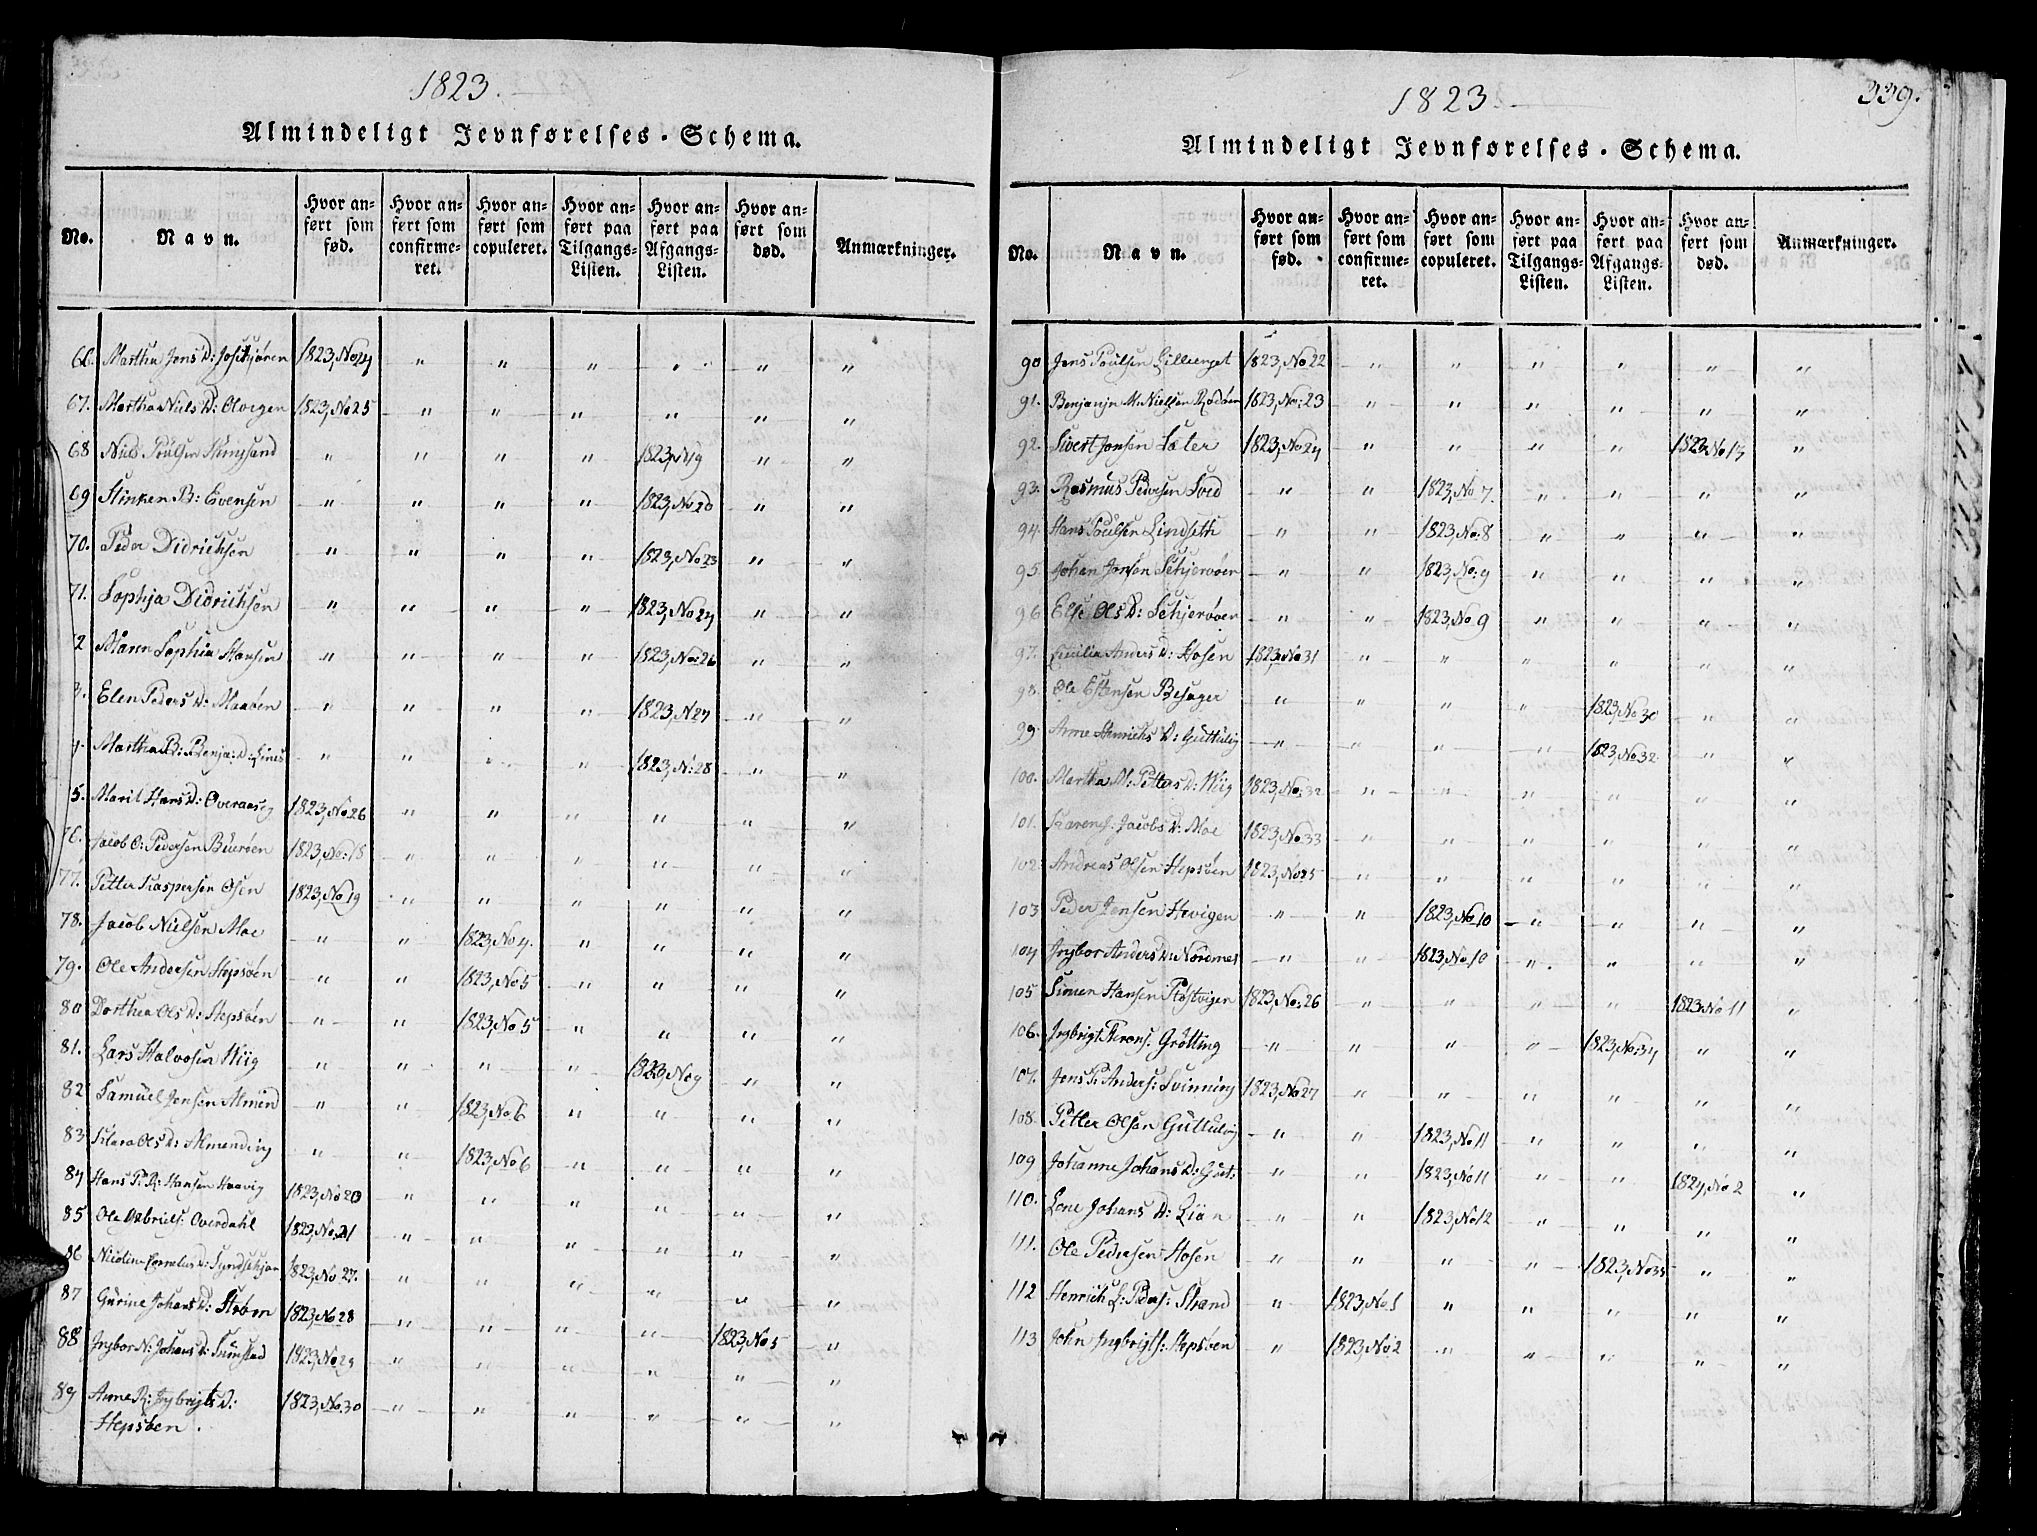 1823.
Almindeligt Jevnførelses-Schema.
No. Navn. Hvor anført som fød. Hvor anført som confirmeret. Hvor anført som copuleret. Hvor anført paa Tilgangs-Listen. Hvor anført paa Afgangs-Listen. Hvor anført som død. Anmærkninger.
66. Martha Jens D: 1823, No 24 " " " " " "
67. Martha Niels D: Olvegen 1823, No 25 " " " " " "
68 Niels Poulsen " " " " 1823, N 19 " "
69 B: Evensen " " " " 1823, No 20 " "
70. Peder Didrichsen " " " " 1823, No 23 " "
71. Sophja Didrichsen " " " " 1823, No 24 " "
72 Maren Sophia Hansen " " " " 1823, No: 26 " "
3. Elen Peders D: Maaøen " " " " 1823, N 27 " "
4. Martha B: Benja: D: Lines " " " " 1823, N: 28 " "
5. Marit Hans D: Overaasen 1823, No 26 " " " " " "
76. Jacob O: Pedersen Buerøen 1823, No: 18 " " " " " "
77. Petter Kaspersen Osen 1823, No 19 " " " " " "
78. Jacob Nielsen Moe " " 1823, No 4. " " " "
79. Ole Andersen Hepsøen " " 1823, No 5 " " " "
80 Dorthea Ols D: Hepsøen " " 1823, No 5 " " " "
81. Lars Halvosen Wiig " " " " 1823 No 9 " "
82 Samuel Jensen Almend " " 1823, No 6 " " " "
83 Klara Ols D: Almending " " 1823, No 6 " " " "
84 Hans P. R: Hansen Haavig 1823, No 20 " " " " " "
85 Ole Gabriels: Overdahl 1823, No 21 " " " " " "
86 Nicoline Cornelius D: 1823, No 27. " " " " " "
87 Gurine Johans D: 1823, No 28 " " " " 1823, No 5 "
88 Ingbor N: Johans D: Sumstad 1823, No 29 " " " " " "
89 Anne R: Ingbrigts D: 1823, No 30 " " " " " "
Hepsøen.
1823
339.
Almindeligt Jevnførelses-Schema.
No. Navn. Hvor anført som fød. Hvor anført som confirmeret. Hvor anført som copuleret. Hvor anført paa Tilgangs-Listen. Hvor anført paa Afgangs-Listen. Hvor anført som død. Anmærkninger.
90 Jens Poulsen 1823, No 22 " " " " " "
91. Benjamin M: Nielsen Rødøen 1823, No: 23 " " " " " "
92. Sivert Jonsen Sæter 1823, No 24 " " " " 1823 No 13 "
93. Rasmus Pedersen Sved " " 1823, No 7. " " " "
94. Hans Poulsen Lindseth " " 1823, No: 8 " " " "
95. Johan Jensen Schjervøen " " 1823, No: 9 " " " "
96 Else Ols D: Schjerøøen " " 1823, No 9 " " " "
97. Cicilia Anders D: Hosen 1823, No 31 " " " " " "
98. Ole Estensen Besager " " " " 1823, No 30 " "
99. Anne Henrichs D: Guttulvig " " " " 1823, No 32. " "
100. Martha M: Petters D: Wiig 1823, No: 32 " " " " " "
101. Karen Jacobs D: Moe 1823, No 33 " " " " " "
102. Andreas Olsen Hepsøen 1823, No 25 " " " " " "
103 Peder Jensen Hovigen " " 1823, No 10 " " " "
104 Ingbor Anders D: Nordmes " " 1823, No 10 " " " "
105 Simen Hansen Fløstvigen 1823, No: 26 " " " " 1823 No 11 "
106. Ingbrigt Grøtting " " " " 1823, No: 34 " "
107. Jens P. Anders: Svinning 1823, No 27 " " " " " "
108. Petter Olsen Guttulvig " " 1823, No 11 " " " "
109 Johanne Johans D: Gutt: " " 1823, No 11 " " 1824, No 2 "
110. Lene Johans D: " " 1823, No 12 " " " "
111. Ole Pedersen Hosen " " " " 1823, No 35 " "
112 Henrich L: Peders: Strand " 1823, No 1 " " " " "
113 John Ingbrigts: Hepsøen " 1823, No: 2 " " " " "